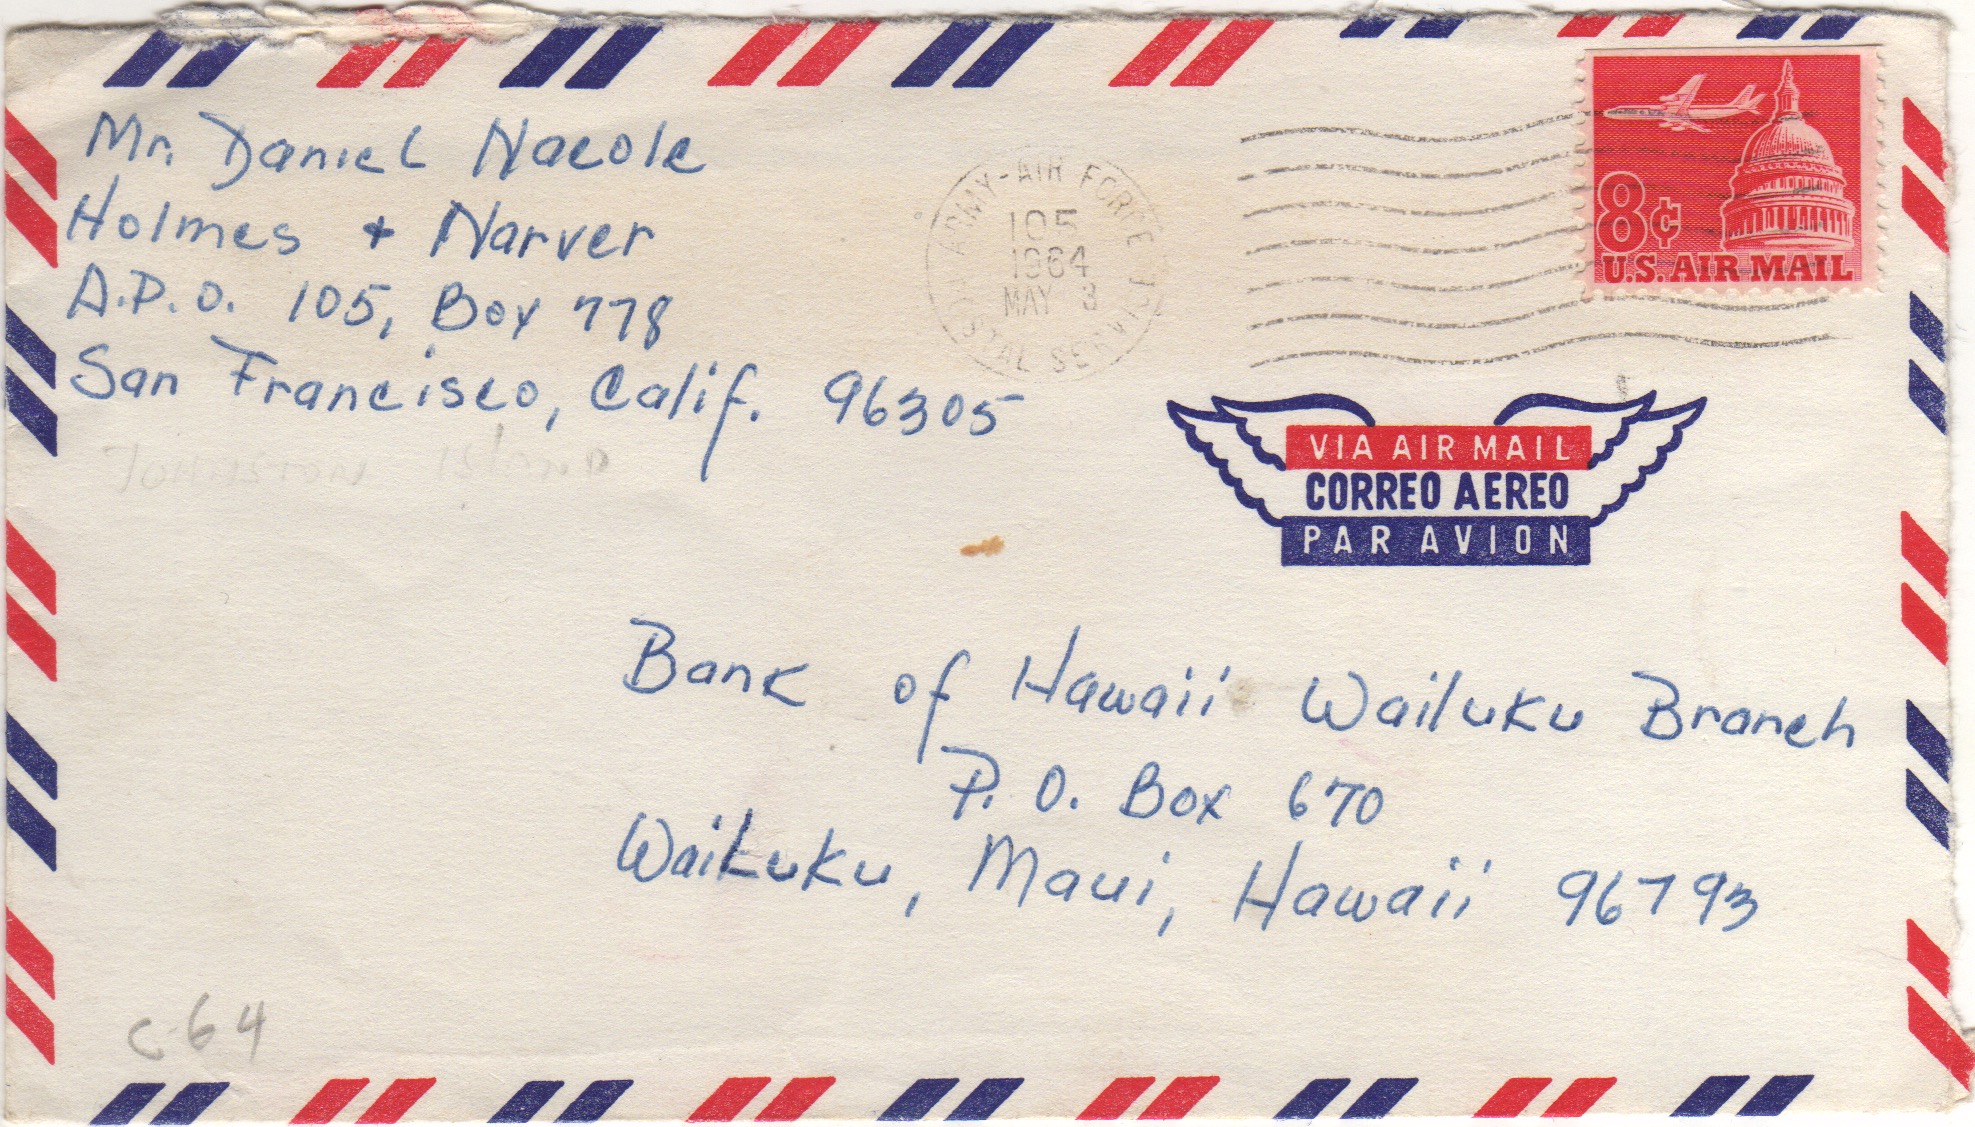 Mr. Daniel Naeole
Holmes + Narver
A.P.O. 105, Box 778
San Francisco, Calif. 96305
Johnston Island
ARMY-AIR FORCE POSTAL SERVICE
105
1964
MAY 3
8¢
U.S. AIR MAIL
VIA AIR MAIL
CORREO AEREO
PAR AVION
Bank of Hawaii Wailuku Branch
P. O. Box 670
Waikuku, Maui, Hawaii 96793
C-64